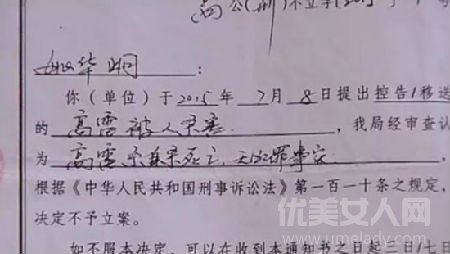 公(刑)不立字
华明:
你(单位)于2015年7月8日提出控告/移送
的高雷被人杀害,我局经审查认
为高雷系自杀死亡,无犯罪事实,
根据《中华人民共和国刑事诉讼法》第一百一十条之规定,
决定不予立案。
如不服本决定,可以在收到本通知书之日起三日/七日
优美女人网
www.umelady.com